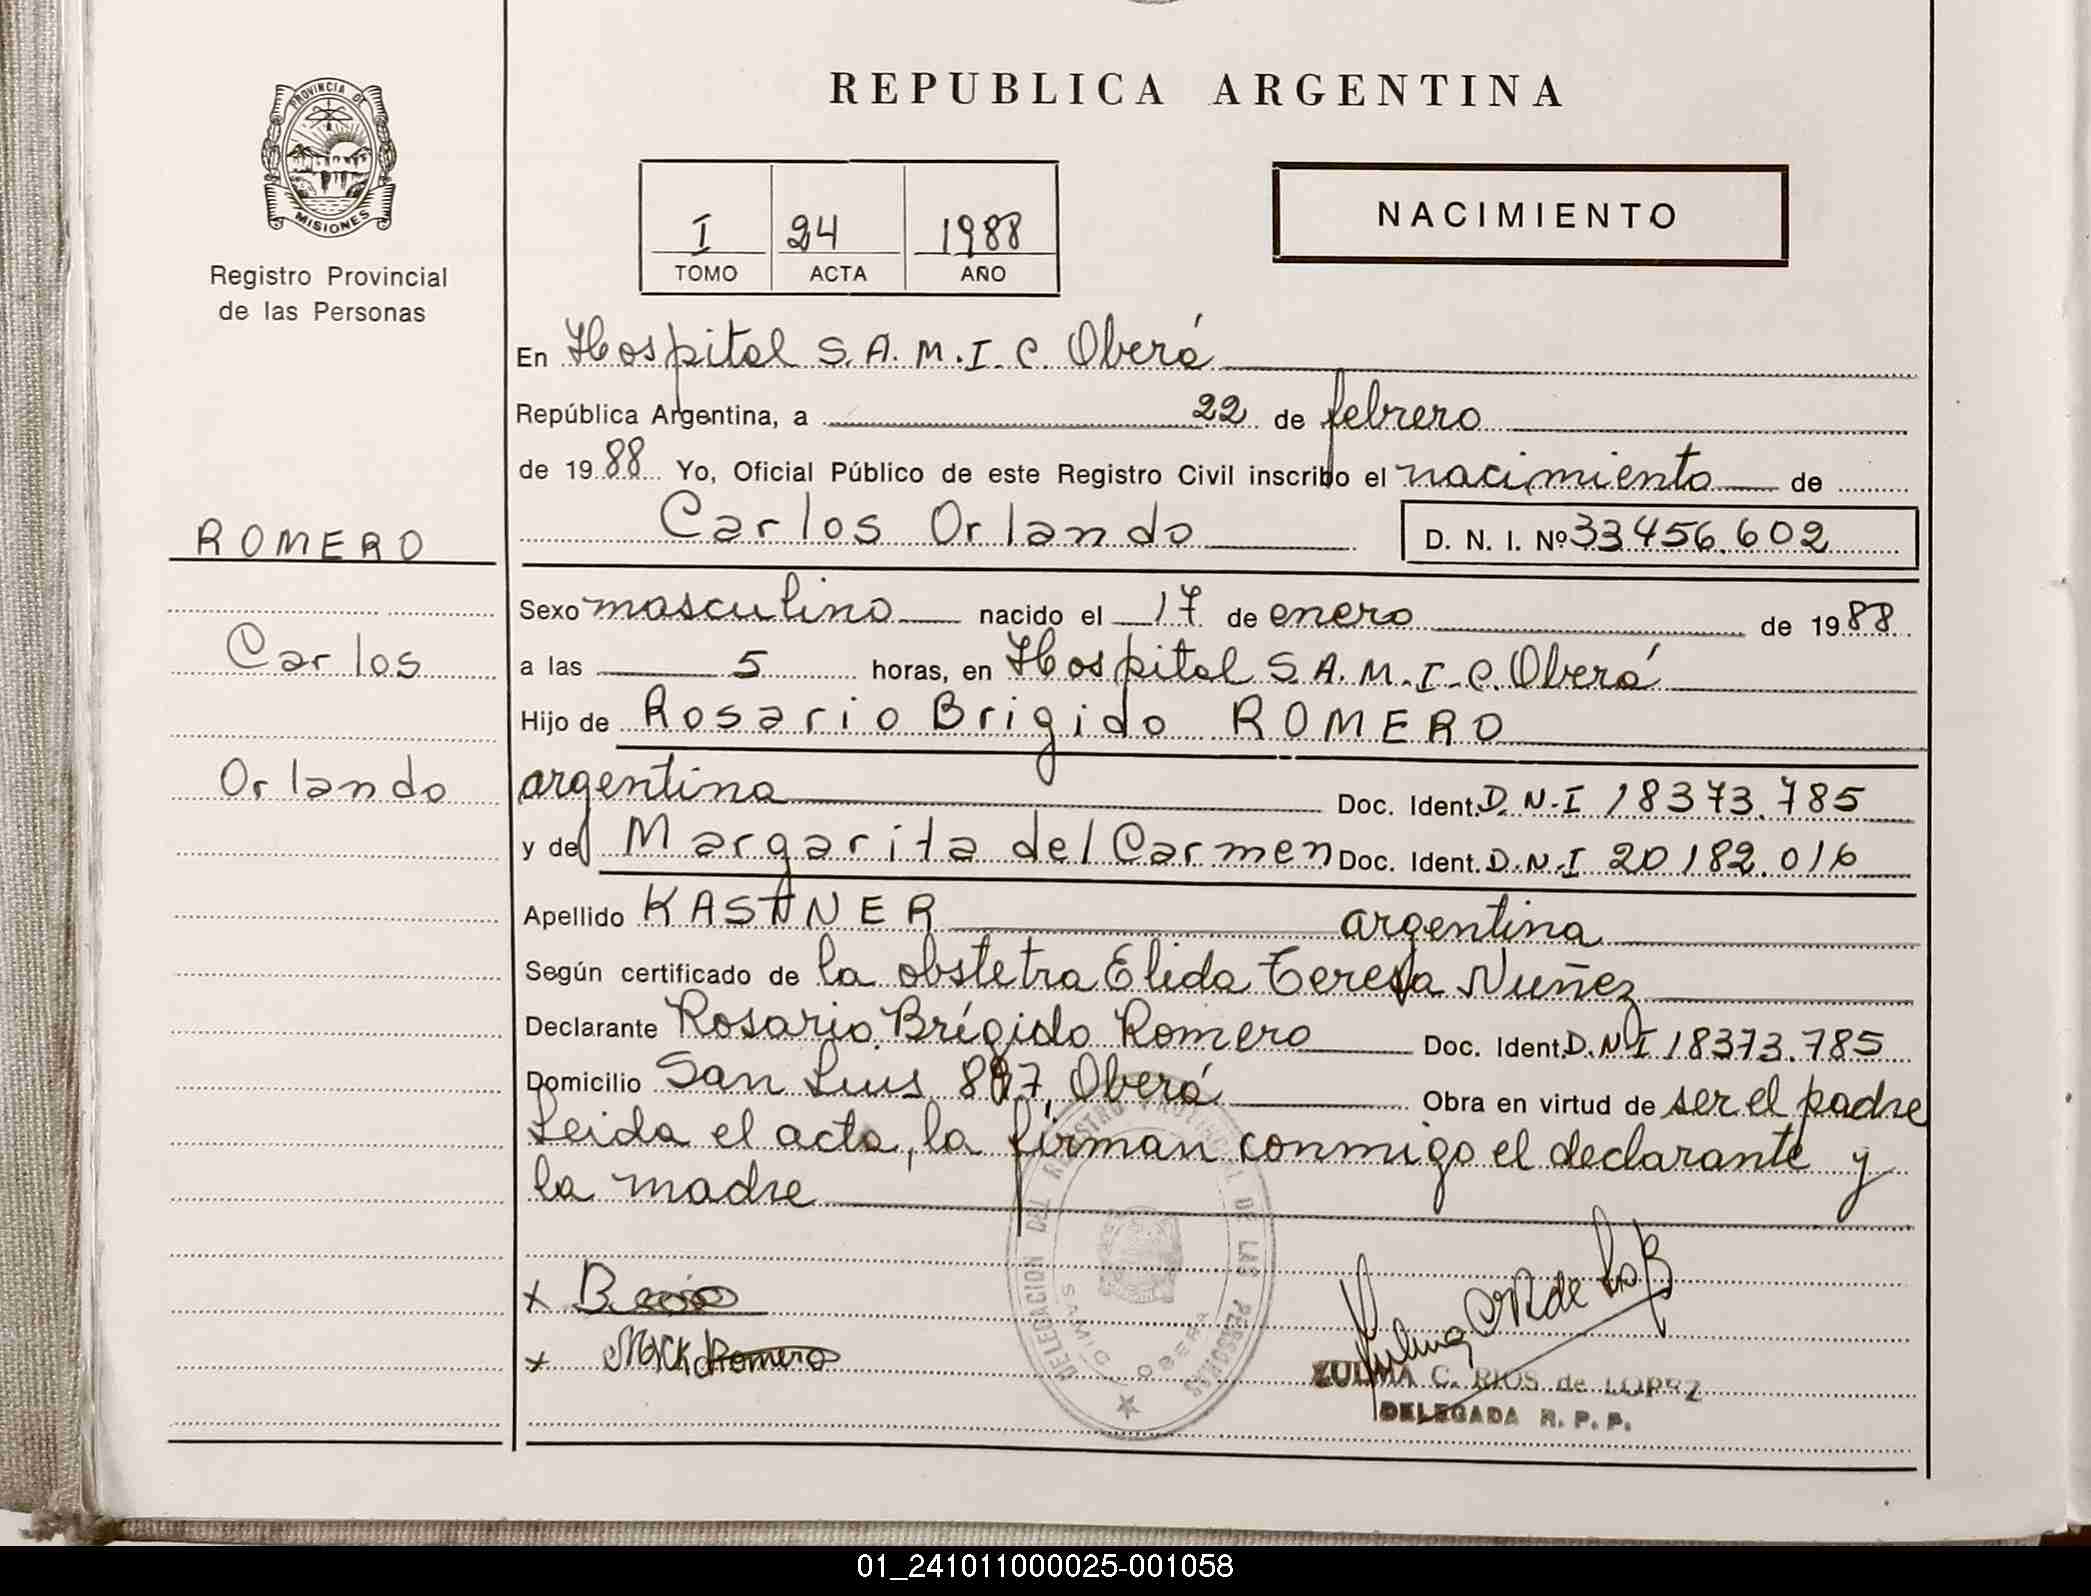 PROVINCIA DE
MISIONES
Registro Provincial
de las Personas
REPUBLICA ARGENTINA
I 24 1988
TOMO ACTA AÑO
NACIMIENTO
En Hospital S.A.M.I.C. Oberá
República Argentina, a 22 de febrero
de 1988 Yo, Oficial Público de este Registro Civil inscribo el nacimiento de
Carlos Orlando D. N. I. Nº 33456.602
ROMERO
Carlos
Orlando
Sexo masculino nacido el 17 de enero de 1988
a las 5 horas, en Hospital S.A.M.I.C. Oberá
Hijo de Rosario Brigido ROMERO
argentina Doc. Ident. D.N.I 18373.785
y de Margarita del Carmen Doc. Ident. D.N.I 20182.016
Apellido KASTNER argentina
Según certificado de la obstetra Elida Teresa Nuñez
Declarante Rosario Brígido Romero Doc. Ident. D.N.I 18373.785
Domicilio San Luis 897, Oberá Obra en virtud de ser el padre
Leida el acta, la firman conmigo el declarante y
la madre
DELEGACION DEL REGISTRO PROVINCIAL DE LAS PERSONAS
SAMIC OBERA
x
x Romero
ZULMA C. RIOS de LOPEZ
DELEGADA R. P. P.
01_241011000025-001058